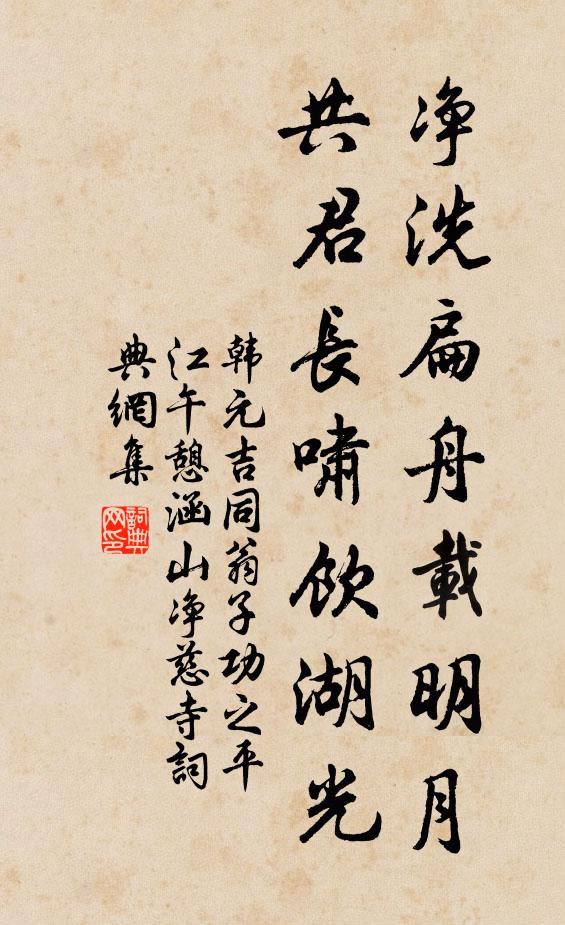 净洗扁舟載明月
共君長嘯飲湖光
韩元吉同翁子功之平
江午憩涵山净慈寺詞
典網集
詞典网印